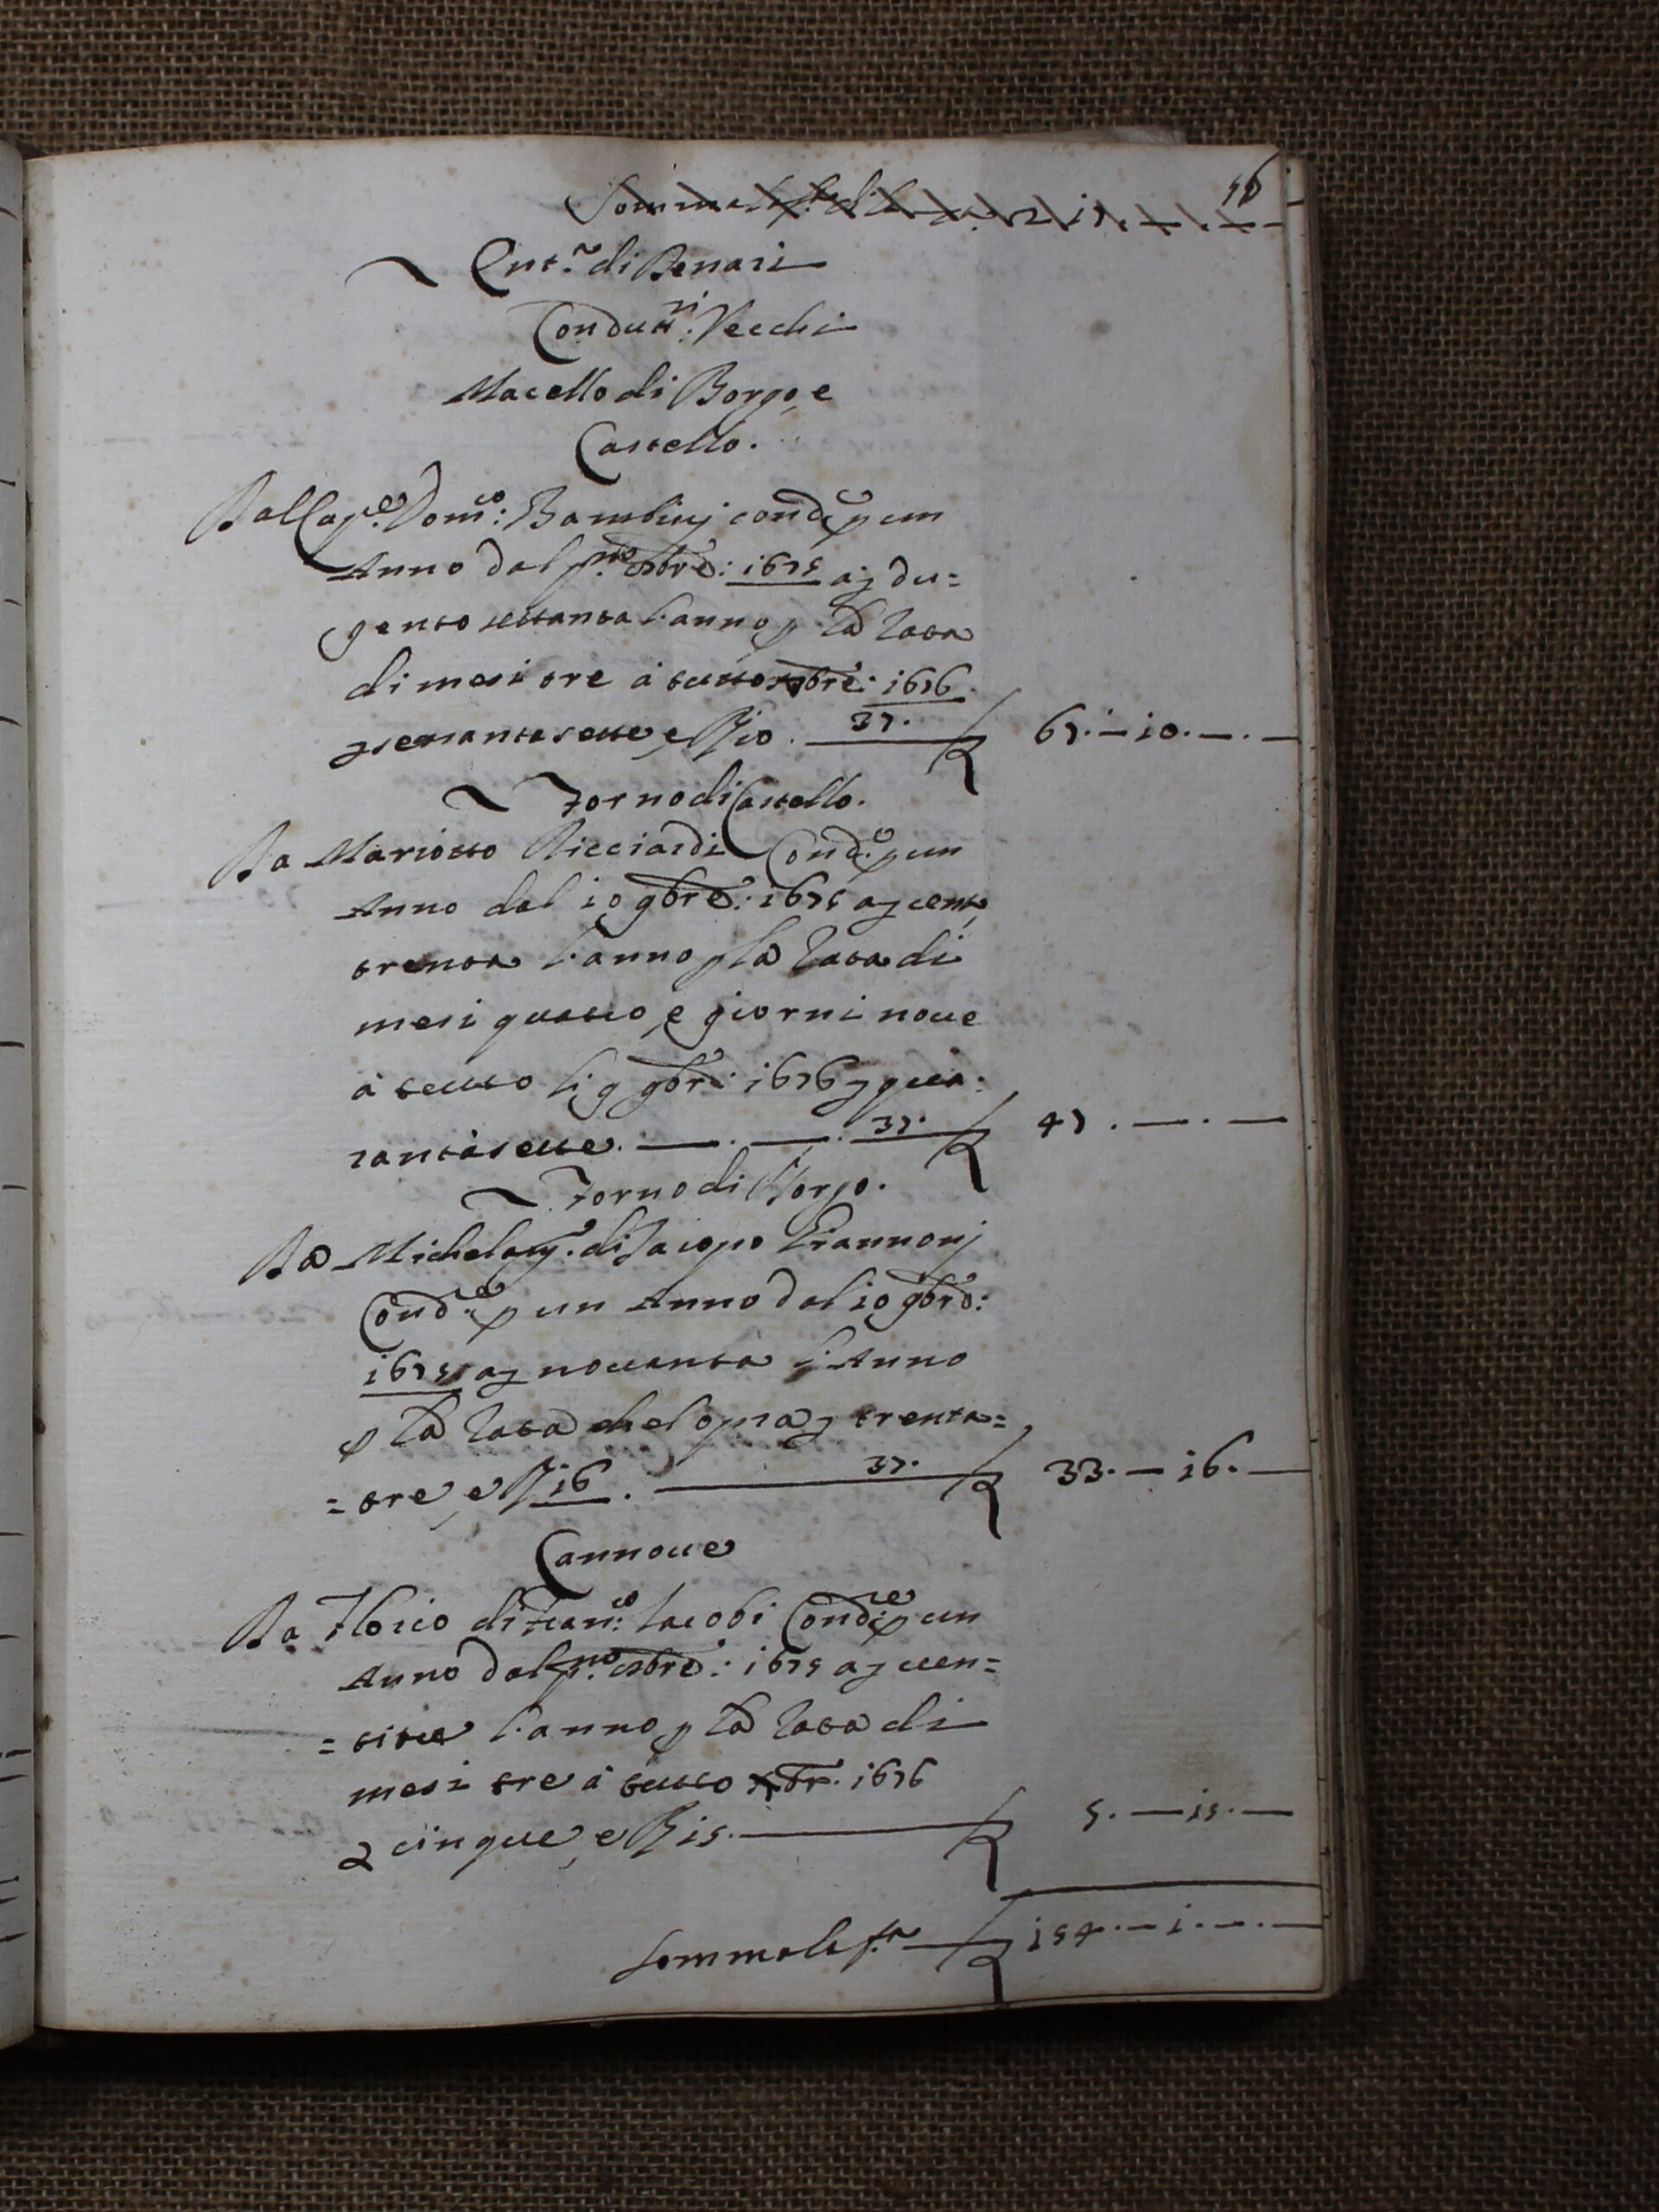 56
Entr.ª di Denari
Condutt.ri Vecchi
Macello di Borgo, e
Castello.
Dal Cap.º Dom.co: Bambinj cond.e p un
Anno dal p.mo Xbre: 1675 a z du=
gento settanta l'anno p la rata
di mesi tre à tutto Xbre: 1676
z sessantasette, e B 10. 37. 67.—10.—.—
Forno di Castello.
Da Mariotto Ricciardi Cond.e p un
Anno dal 10 9bre: 1675 a z cento
trenta l'anno p la rata di
mesi quattro, e giorni noue
à tutto li 9 9bre: 1676 z qua:
rantasette. —. —. 37. 47.—.—
Forno di Borgo.
Da Michelag.º di Jacopo Giannonj
Cond.e p un Anno dal 10 9bre:
1675 a z nouanta l'Anno
p la rata che sopra z trenta=
=tre, e B 16. 37. 33.—16.—
Cannoue
Da Florio di Fran.co: Jacobi Cond.e p un
Anno dal p.mo Xbre: 1675 a z uen=
=titre l'anno p la rata di
mesi tre à tutto Xbr. 1676
z cinque, e B 15. 5.—15.—
Somma la f.ta 154.—1.—.—